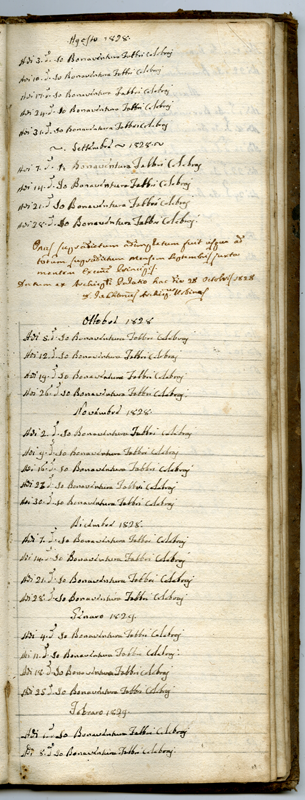 Agosto 1828.
Adi 3. d.º Io Bonaventura Fabbri Celebraj
Adi 10. d.º Io Bonaventura Fabbri Celebraj
Adi 17. d.º Io Bonaventura Fabbri Celebraj
Adi 24. d.º Io Bonaventura Fabbri Celebraj
Adi 31. d.º Io Bonaventura Fabbri Celebraj
~ Settembre ~ 1828 ~
Adi 7. d.º Io Bonaventura Fabbri Celebraj
Adi 14. d.º Io Bonaventura Fabbri Celebraj
Adi 21. d.º Io Bonaventura Fabbri Celebraj
Adi 28. d.º Io Bonaventura Fabbri Celebraj
Onus supradictum adimpletum fuit usque ad
totum supradictum Mensem Septembris juxta
mentem
Datum ex hac die 28 Octobris 1828
Ottobre 1828
Adi 5. d.º Io Bonaventura Fabbri Celebraj
Adi 12. d.º Io Bonaventura Fabbri Celebraj
Adi 19. d.º Io Bonaventura Fabbri Celebraj
Adi 26. d.º Io Bonaventura Fabbri Celebraj
Novembre 1828.
Adi 2. d.º Io Bonaventura Fabbri Celebraj
Adi 9. d.º Io Bonaventura Fabbri Celebraj
Adi 16. d.º Io Bonaventura Fabbri Celebraj
Adi 23. d.º Io Bonaventura Fabbri Celebraj
Adi 30. d.º Io Bonaventura Fabbri Celebraj
Dicembre 1828.
Adi 7. d.º Io Bonaventura Fabbri Celebraj
Adi 14. d.º Io Bonaventura Fabbri Celebraj
Adi 21. d.º Io Bonaventura Fabbri Celebraj
Adi 28. d.º Io Bonaventura Fabbri Celebraj
Ginaro 1829.
Adi 4. d.º Io Bonaventura Fabbri Celebraj
Adi 11. d.º Io Bonaventura Fabbri Celebraj
Adi 18. d.º Io Bonaventura Fabbri Celebraj
Adi 25. d.º Io Bonaventura Fabbri Celebraj
Febraro 1829.
Adi 1. d.º Io Bonaventura Fabbri Celebraj
Adi 8. d.º Io Bonaventura Fabbri Celebraj